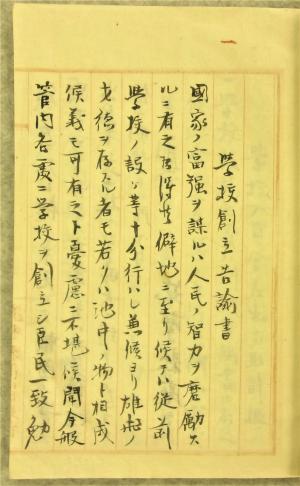 一
學校創立告諭書
國家ノ富强ヲ謀ルハ人民ノ智力ヲ磨勵ス
ルニ有之候得共僻地ニ至リ候テハ從前
學校ノ設ケ等十分行ハレ兼候ヨリ雄ノ
才徳ヲ存スル者モ若クハ池中ノ物ト相成
候義モ可有之ト憂慮ニ不堪候間今般
管内各處ニ学校ヲ創立シ臣民一致勉